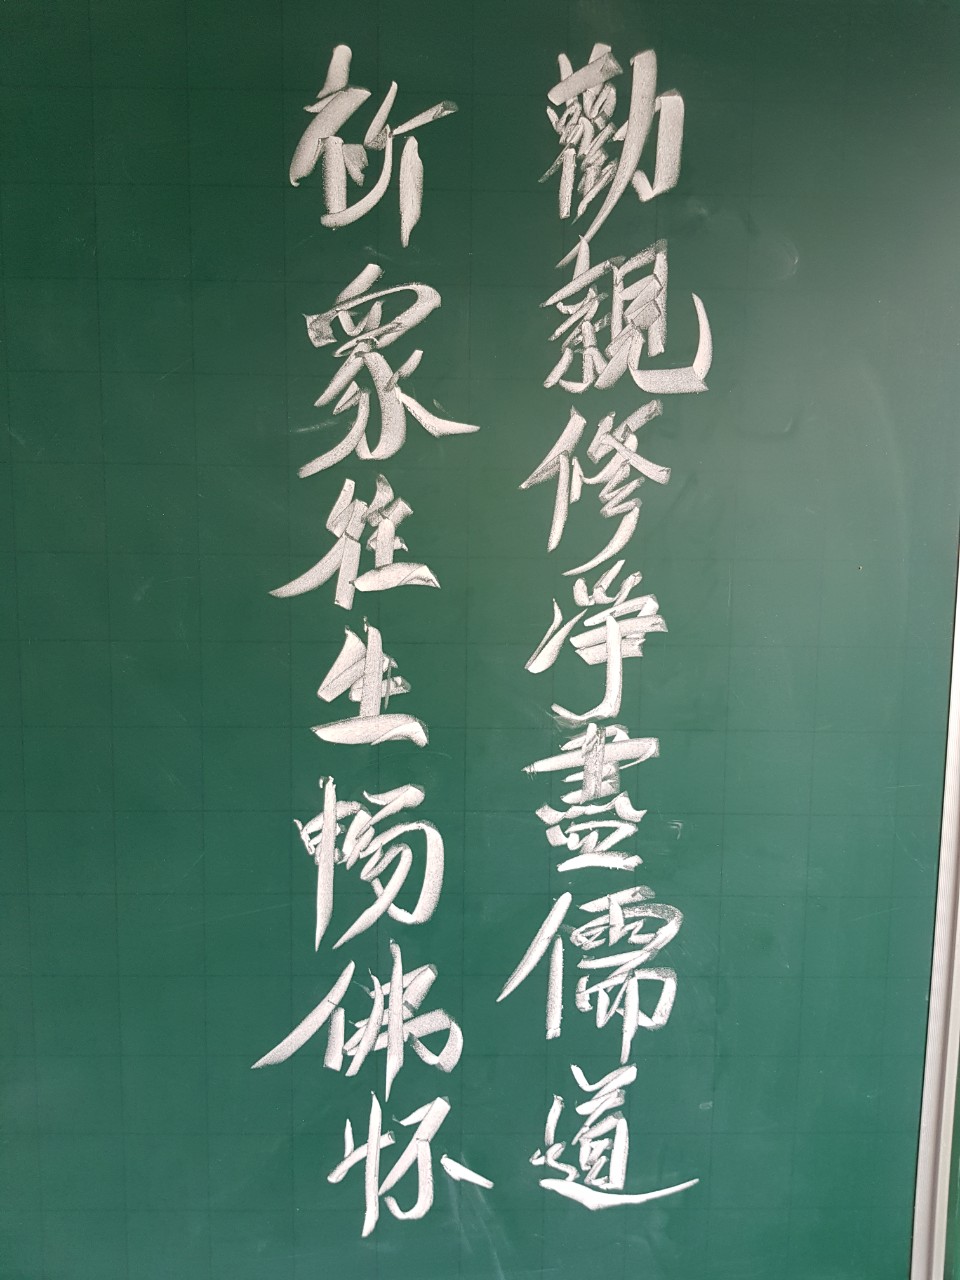 勸親修淨盡儒道
祈眾往生暢佛怀